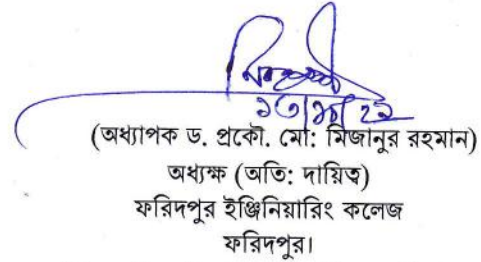 (অধ্যাপক ড. প্রকৌ. মো: মিজানুর রহমান)
অধ্যক্ষ (অতি: দায়িত্ব)
ফরিদপুর ইঞ্জিনিয়ারিং কলেজ
ফরিদপুর।